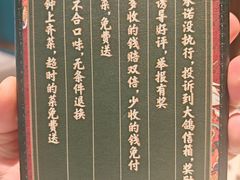 承诺没执行，投诉到大鸽信箱，奖
诱导好评，举报有奖
多收的钱赔双倍，少收的钱免付
菜，免费送
不合口味，无条件退换
钟上齐菜，超时的菜免费送